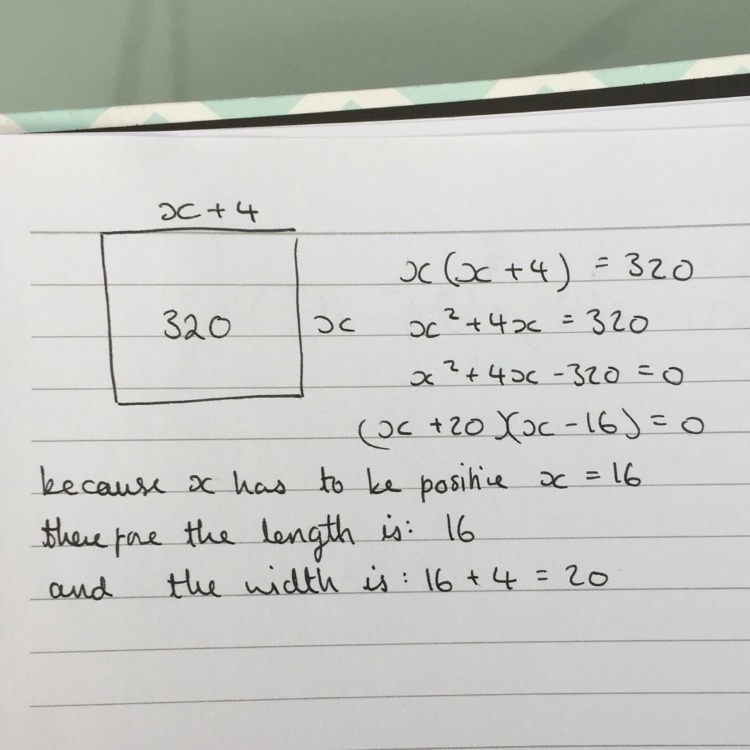 x + 4
320
x
x(x + 4) = 320
x² + 4x = 320
x² + 4x - 320 = 0
(x + 20)(x - 16) = 0
because x has to be positive x = 16
therefore the length is: 16
and the width is: 16 + 4 = 20